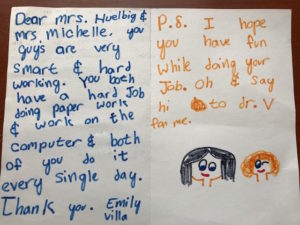 Dear Mrs. Huelbig &
Mrs. Michelle. you
guys are very
smart & hard
working. You both
have a hard Job
doing paper work
& work on the
computer & both
of you do it
every single day.
Thank you. Emily
villa
P.S. I hope
you have fun
while doing your
Job. Oh & say
hi to dr. V
for me.